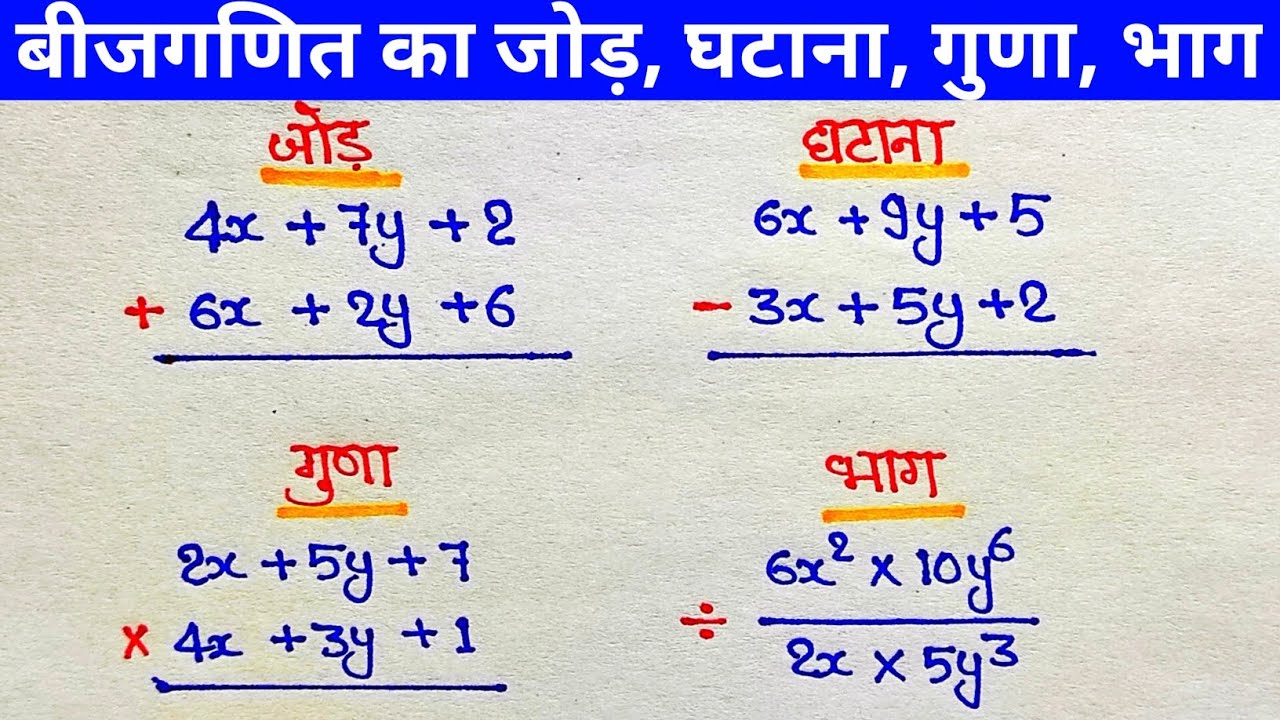 बीजगणित का जोड़, घटाना, गुणा, भाग
जोड़
4x + 7y + 2
+ 6x + 2y + 6
घटाना
6x + 9y + 5
- 3x + 5y + 2
गुणा
2x + 5y + 7
× 4x + 3y + 1
भाग
6x² × 10y⁶
÷
2x × 5y³